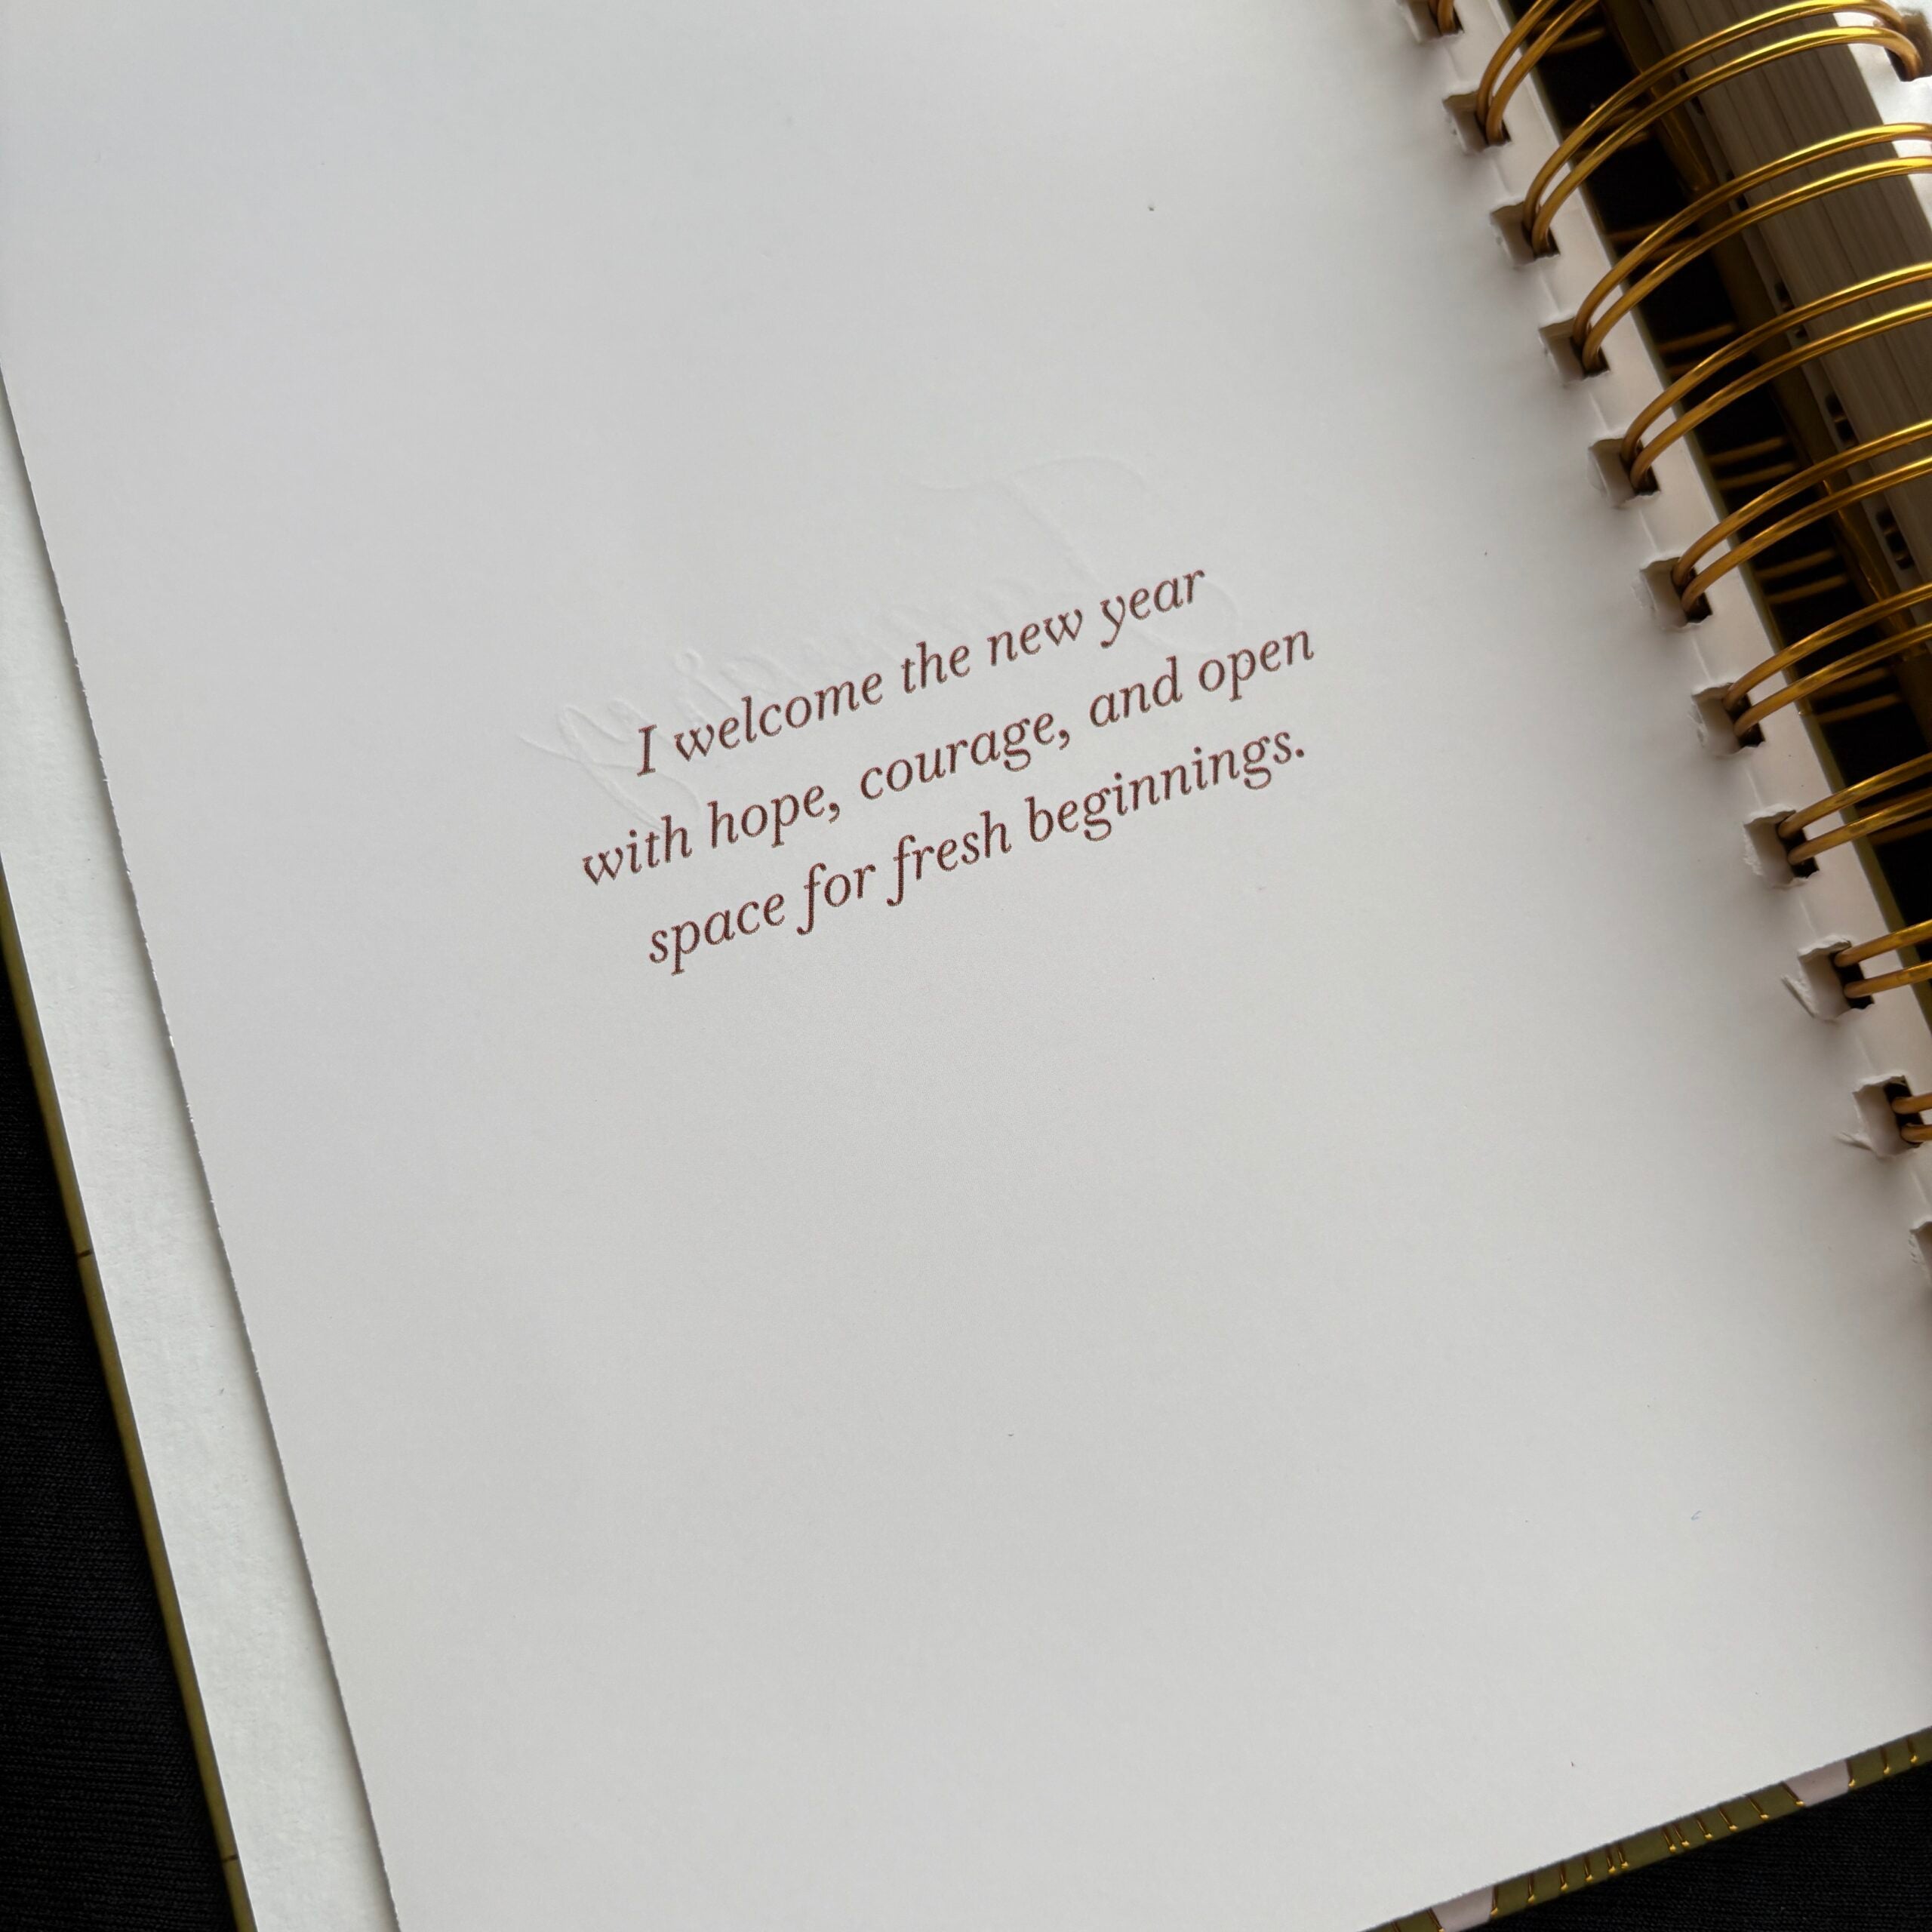 I welcome the new year
with hope, courage, and open
space for fresh beginnings.